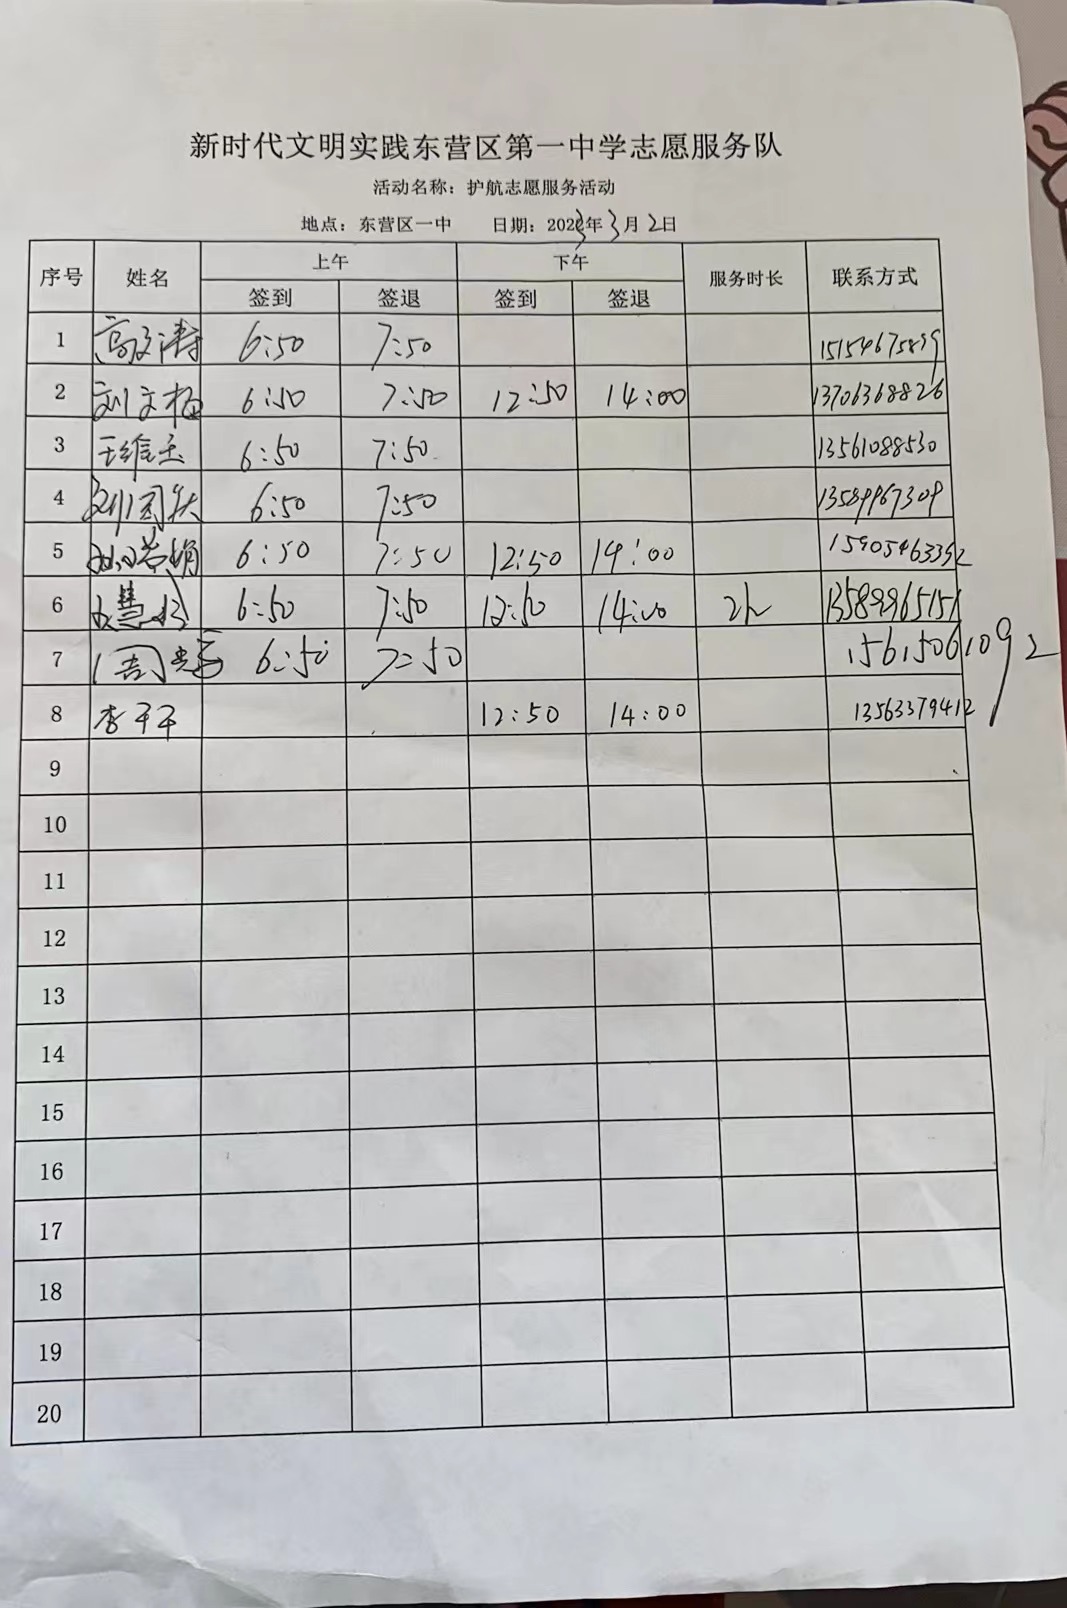 新时代文明实践东营区第一中学志愿服务队
活动名称：护航志愿服务活动
地点：东营区一中 日期：2023年3月2日
序号 姓名 上午 下午 服务时长 联系方式
签到 签退 签到 签退
1 6:50 7:50 15154675899
2 刘文梅 6:50 7:50 12:50 14:00 13706368826
3 王维玉 6:50 7:50 13561088530
4 6:50 7:50 13589967309
5 6:50 7:50 12:50 14:00 15905463392
6 6:50 7:50 12:50 14:00 2h
7 6:50 7:50 15615061092
8 李平平 12:50 14:00 13563379412
9
10
11
12
13
14
15
16
17
18
19
20